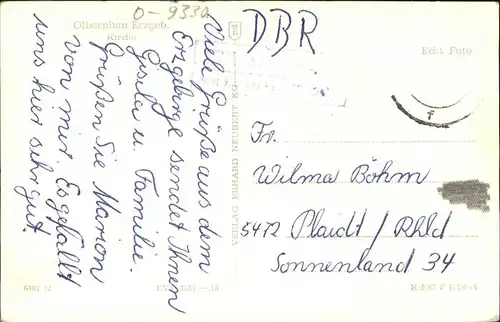 O-9330
Olbernhau Erzgeb.
Kirche
Viele Grüße aus dem
Erzgebirge sendet Ihnen
Gisela u. Familie.
Grüßen Sie Marion
von mir. Es gefällt
uns hier sehr gut.
VERLAG ERHARD NEUBERT KG
DBR
Echt Foto
Fr.
Wilma Böhm
5472 Plaidt / Rhld
Sonnenland 34